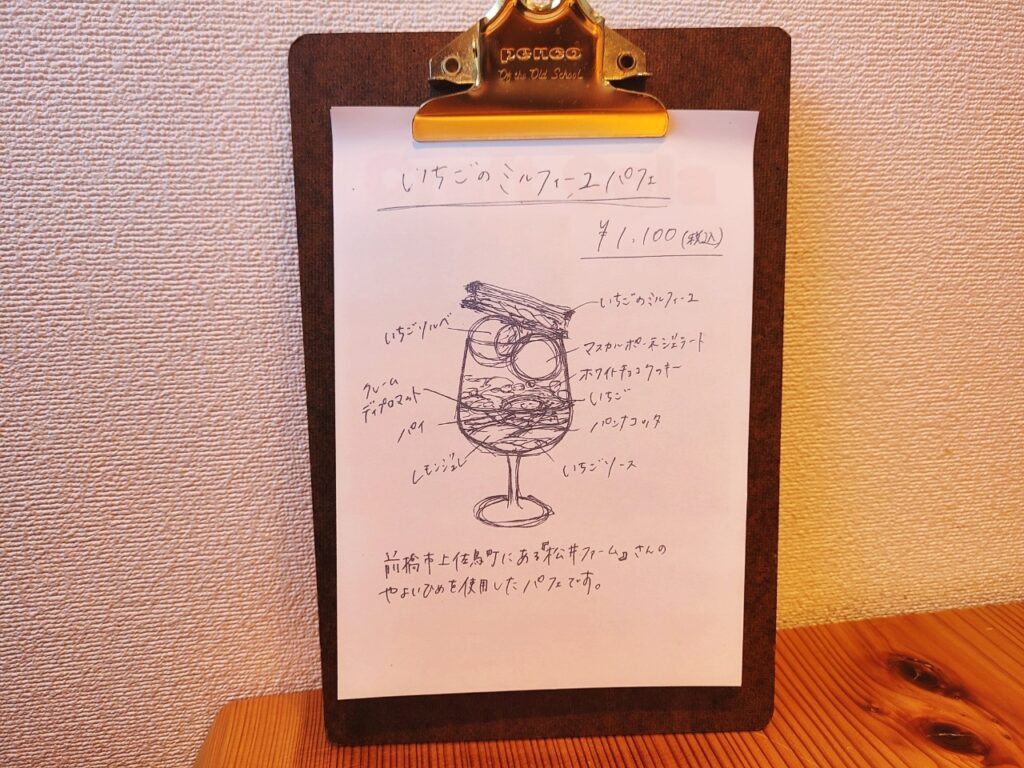 penco
Off the Old School
いちごのミルフィーユパフェ
¥1,100(税込)
いちごのミルフィーユ
いちごソルベ
マスカルポーネジェラート
ホワイトチョコクッキー
クレーム
ディプロマット
いちご
パイ
パンナコッタ
レモンジュレ
いちごソース
前橋市上佐鳥町にある『松井ファーム』さんの
やよいひめを使用したパフェです。